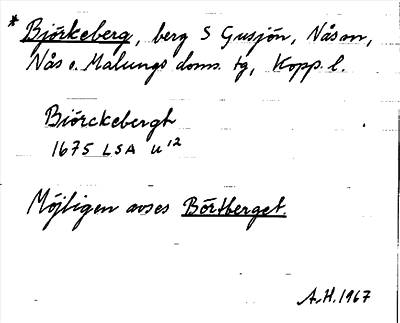 * Björkeberg, berg S Gusjön, Nås sn,
Nås o. Malungs doms. tg, Kopp. l.
Biörckebergh
1675 LSA U¹²
Möjligen avses Börtberget.
A.H. 1967